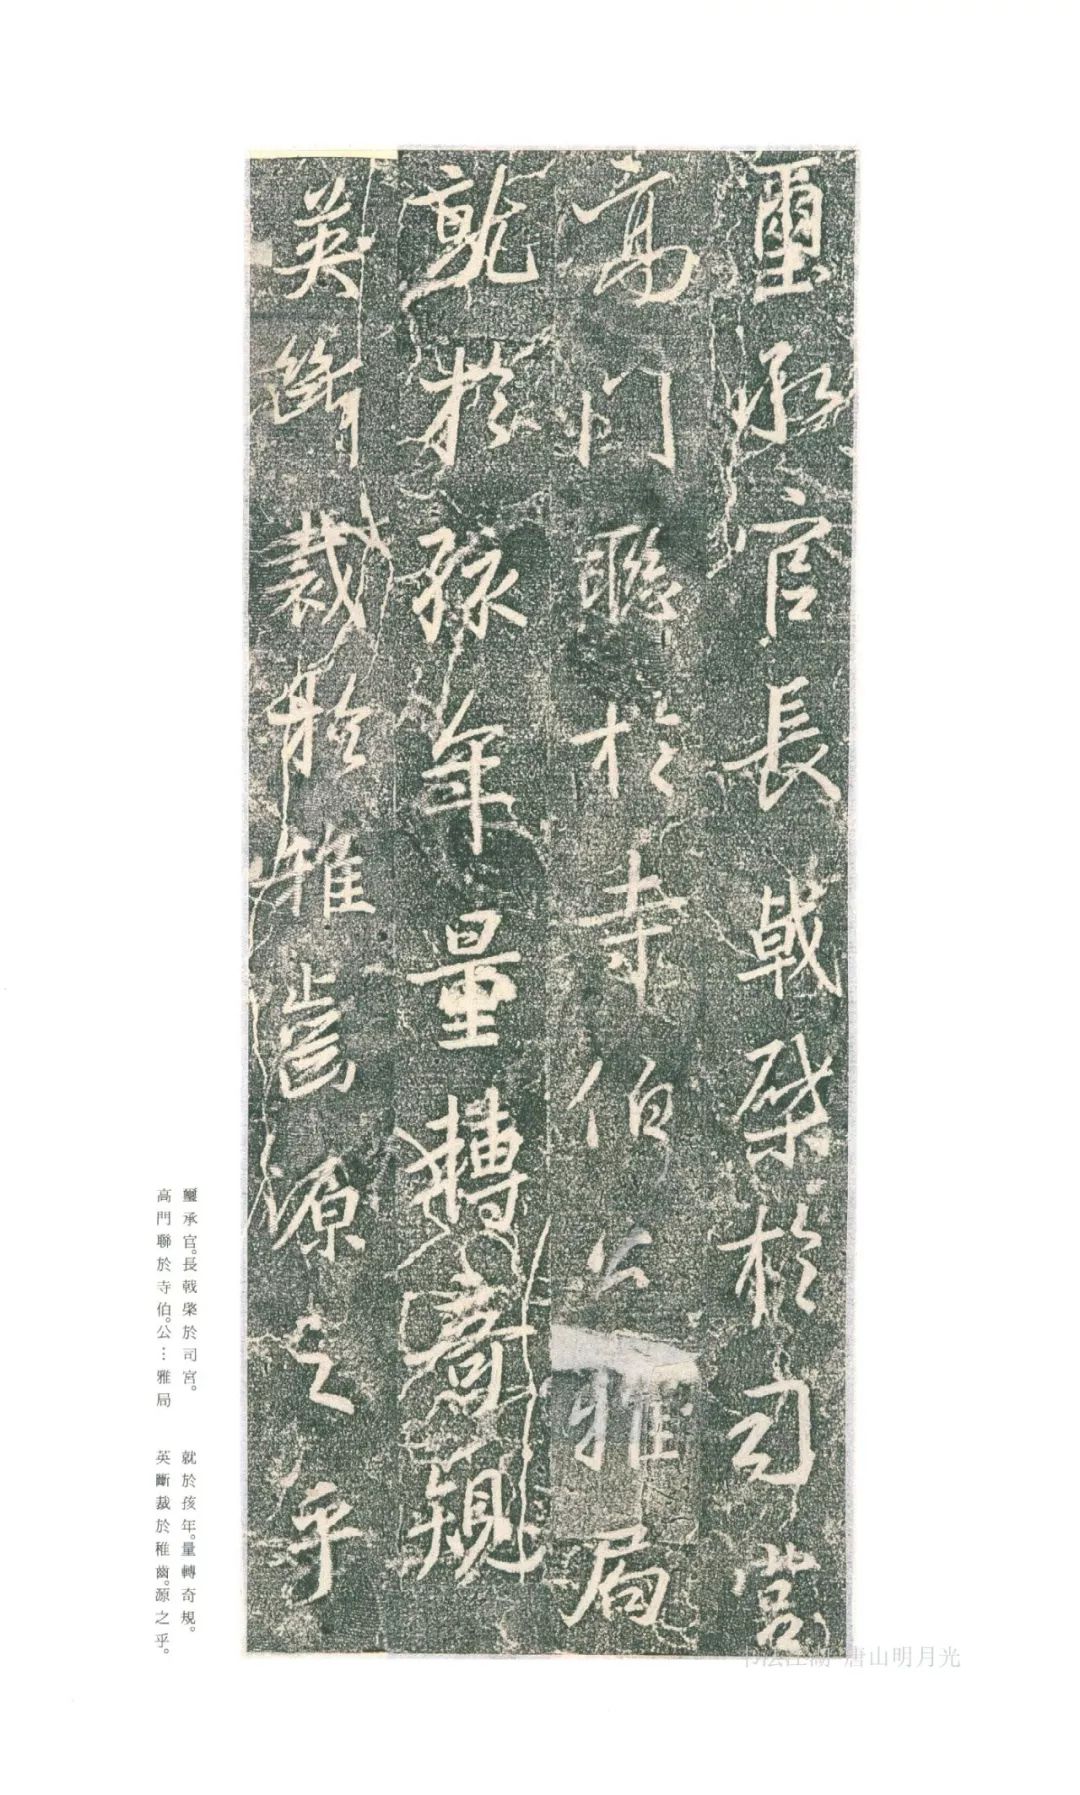 璽承官長戟棨於司宮
高門聯於寺伯公雅局
就於孩年量轉奇規
英斷裁於稚齒源之乎
璽承官。長戟棨於司宮。
高門聯於寺伯。公…雅局
就於孩年。量轉奇規。
英斷裁於稚齒。源之乎。
书法江湖 唐山明月光